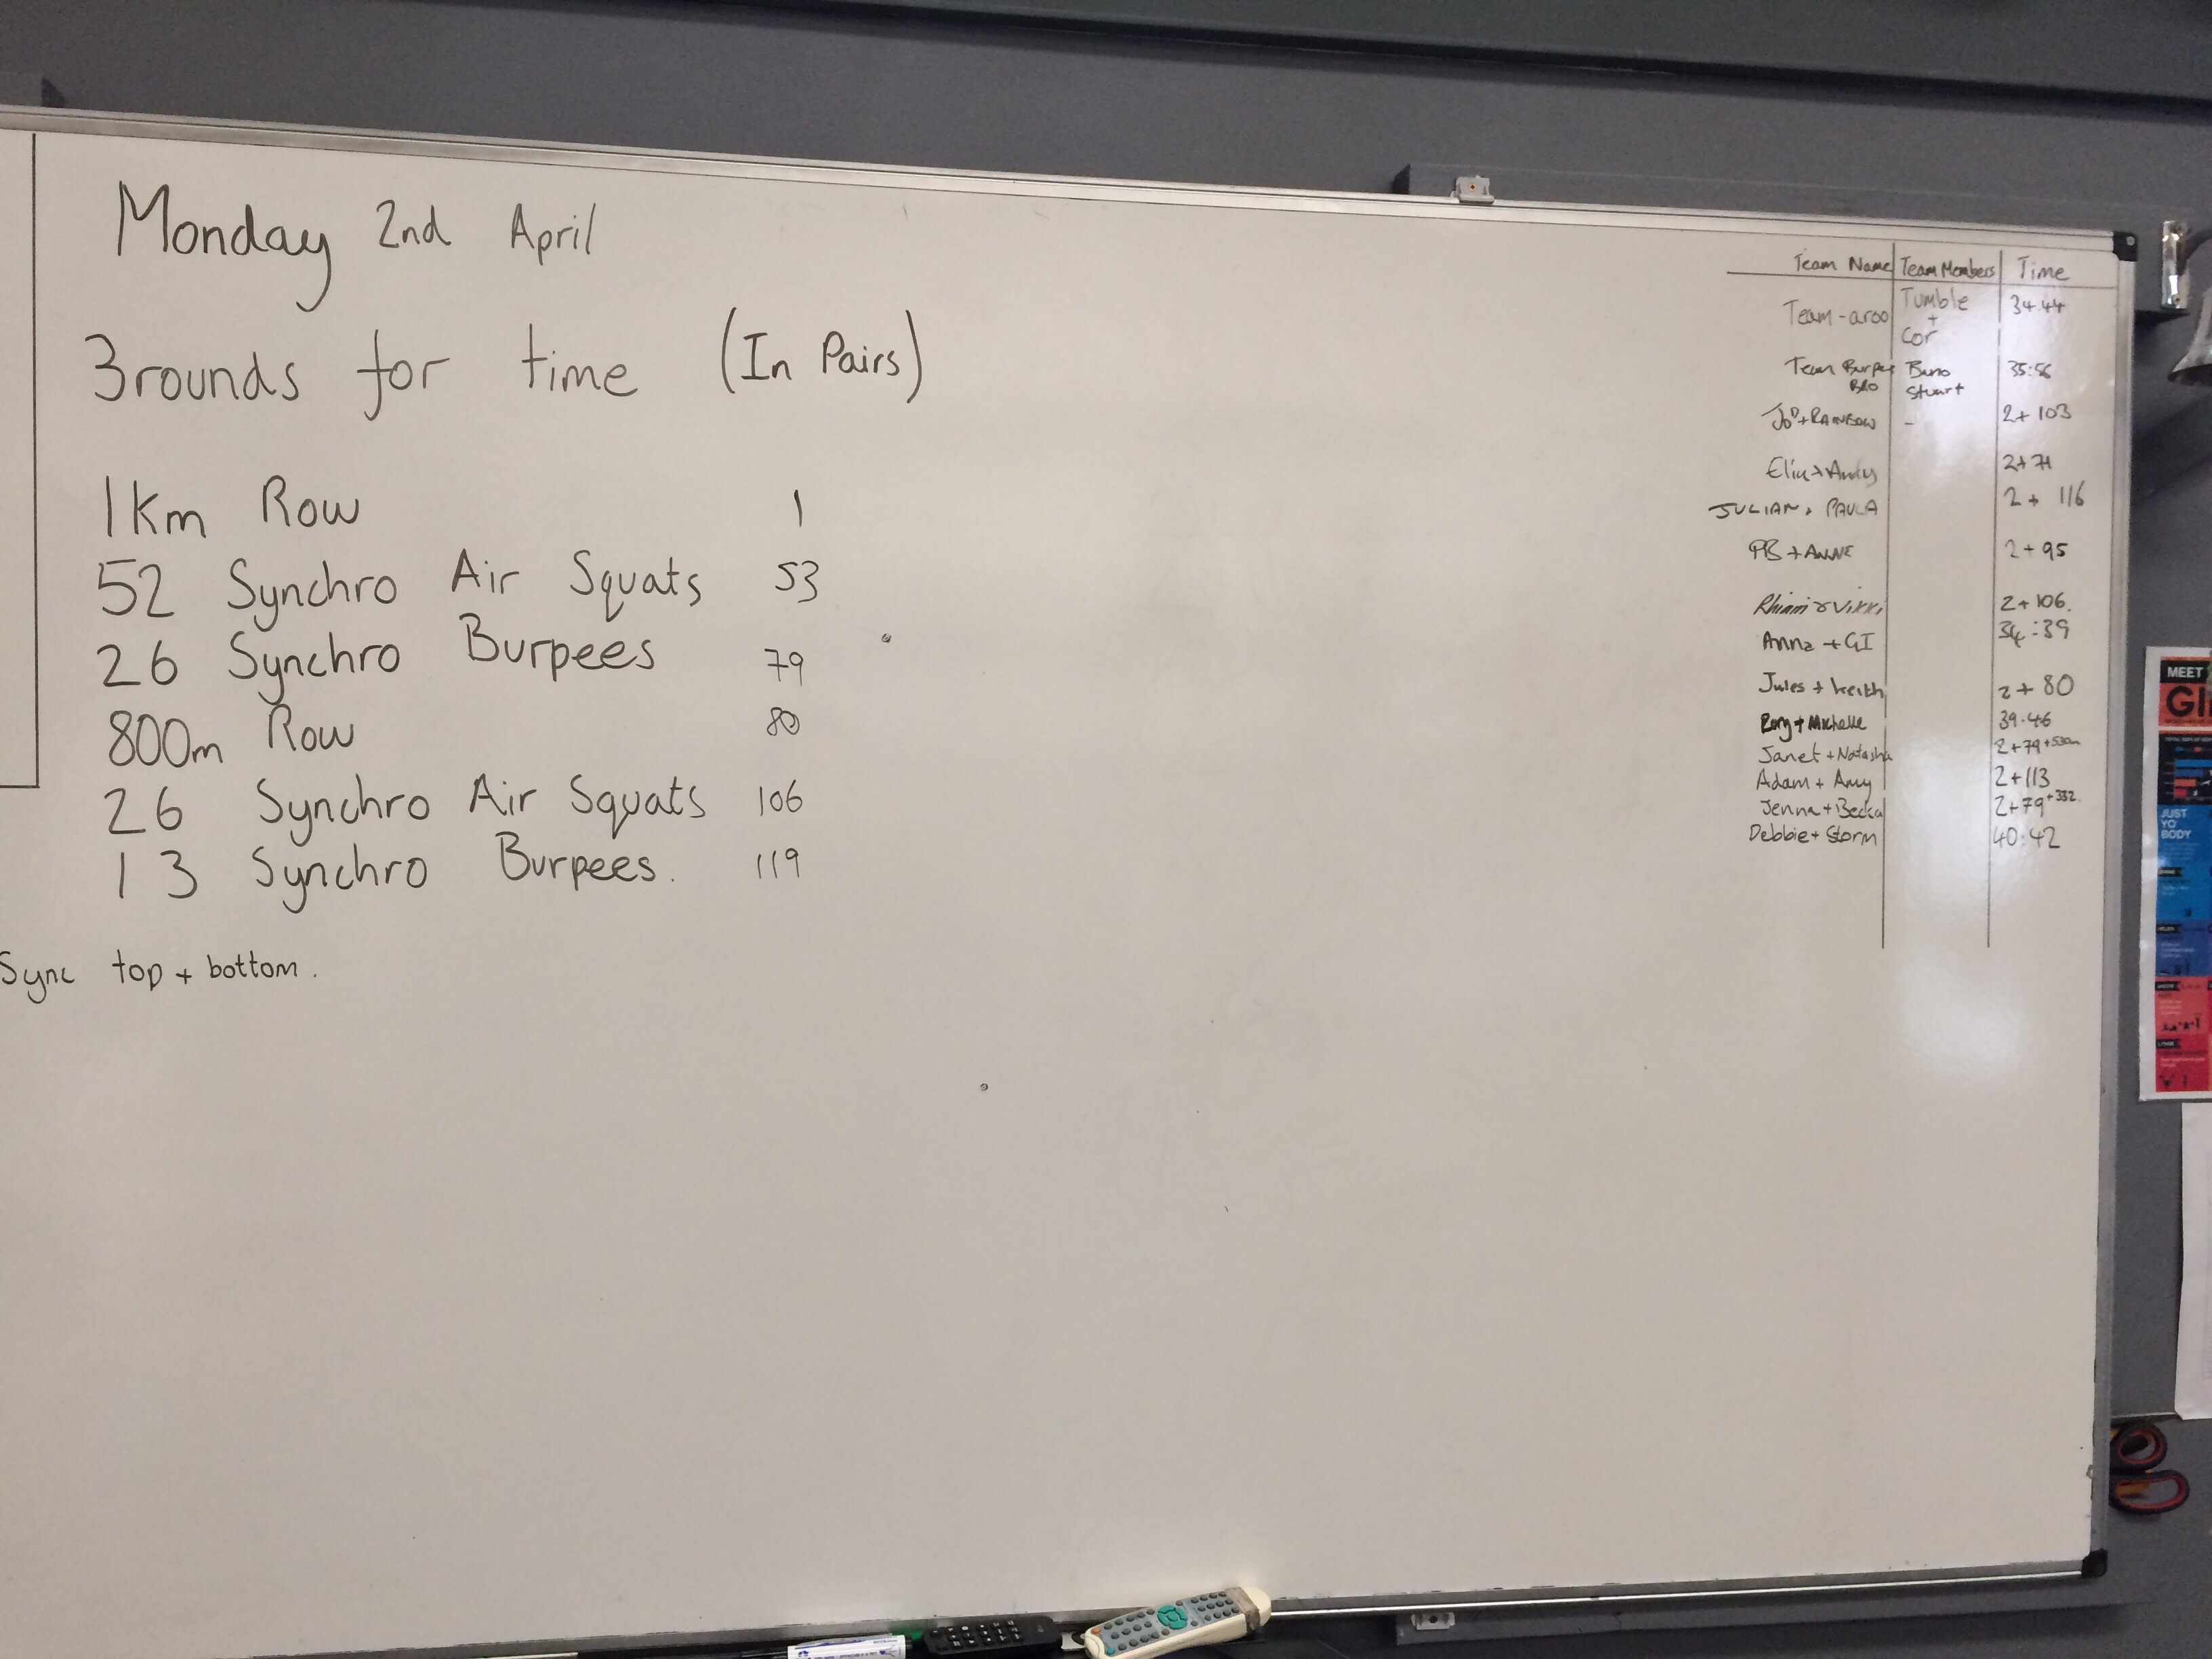 Monday 2nd April
3 rounds for time (In Pairs)
1Km Row 1
52 Synchro Air Squats 53
26 Synchro Burpees 79
800m Row 80
26 Synchro Air Squats 106
13 Synchro Burpees. 119
Sync top + bottom.
Team Name Team Members Time
Team-aroo Tumble + Cor 34.44
Team Burpee Bro Stuart 35:56
Jo + RAINBOW - 2+103
+ Andy 2+71
JULIAN + PAULA 2 + 116
PB + ANNE 2+95
& Vikki 2+106.
Anna + GI 34:39
Jules + Keith 2+80
Rory + Michelle 39.46
Janet + Natasha 2+79+530m
Adam + Amy 2+113
Jenna + Becka 2+79+332
Debbie + Storm 40:42
MEET
GI
JUST
YO'
BODY